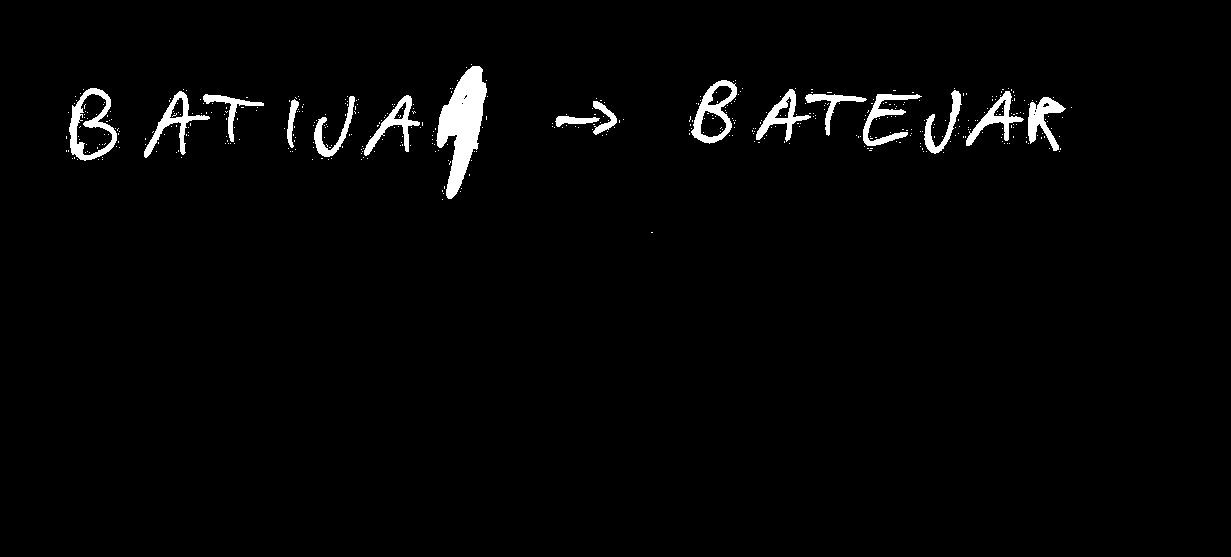 BATIJA → BATEJAR